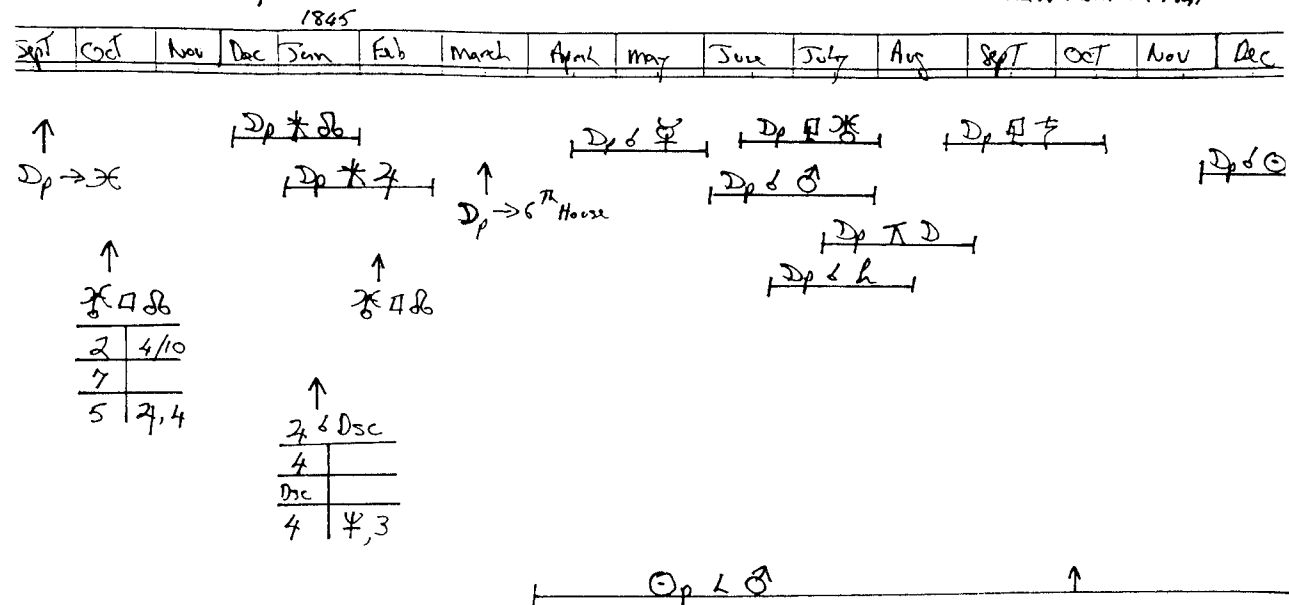 1845
Sept Oct Nov Dec Jan Feb March April May June July Aug Sept OCT Nov Dec
☽p ⚹ ☊
☽p ☌ ☿
☽p □ ♅
☽p □ ♄
☽p → ♓
☽p ⚹ ♃
☽p → 6th House
☽p ☌ ♂
☽p ☌ ☉
☽p ⚻ ☽
♅ □ ☊
♅ □ ☊
2 4/10
7
5 ♃, 4
♃ ☌ Dsc
4
Dsc
4 ♆, 3
☉p ∠ ♂